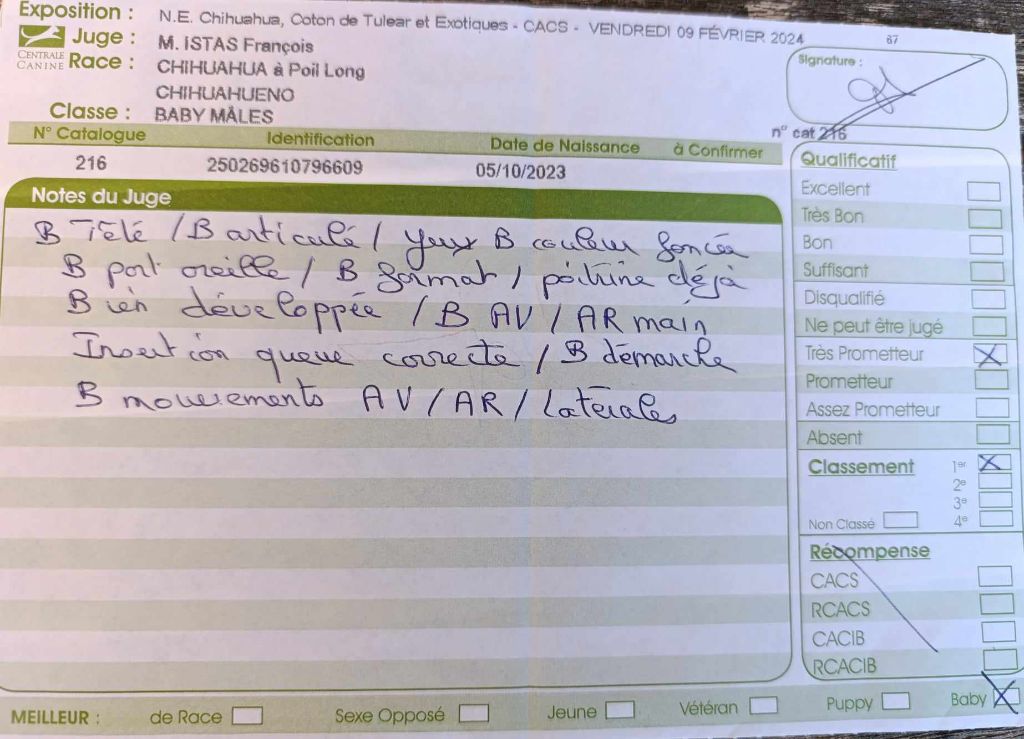 Exposition : N.E. Chihuahua, Coton de Tulear et Exotiques - CACS - VENDREDI 09 FÉVRIER 2024 87
Juge : M. ISTAS François
CENTRALE CANINE
Race : CHIHUAHUA à Poil Long
CHIHUAHUENO
Classe : BABY MÂLES
Signature :
n° cat 216
N° Catalogue Identification Date de Naissance à Confirmer
216 250269610796609 05/10/2023
Notes du Juge
B Tété / B articulé / yeux B couleur foncée
B port oreille / B format / poitrine déjà
Bien développée / B AV / AR main
Insertion queue correcte / B démarche
B mouvements AV / AR / Latérales
Qualificatif
Excellent
Très Bon
Bon
Suffisant
Disqualifié
Ne peut être jugé
Très Prometteur X
Prometteur
Assez Prometteur
Absent
Classement 1er X
2e
3e
Non Classé 4e
Récompense
CACS
RCACS
CACIB
RCACIB
MEILLEUR : de Race Sexe Opposé Jeune Vétéran Puppy Baby X